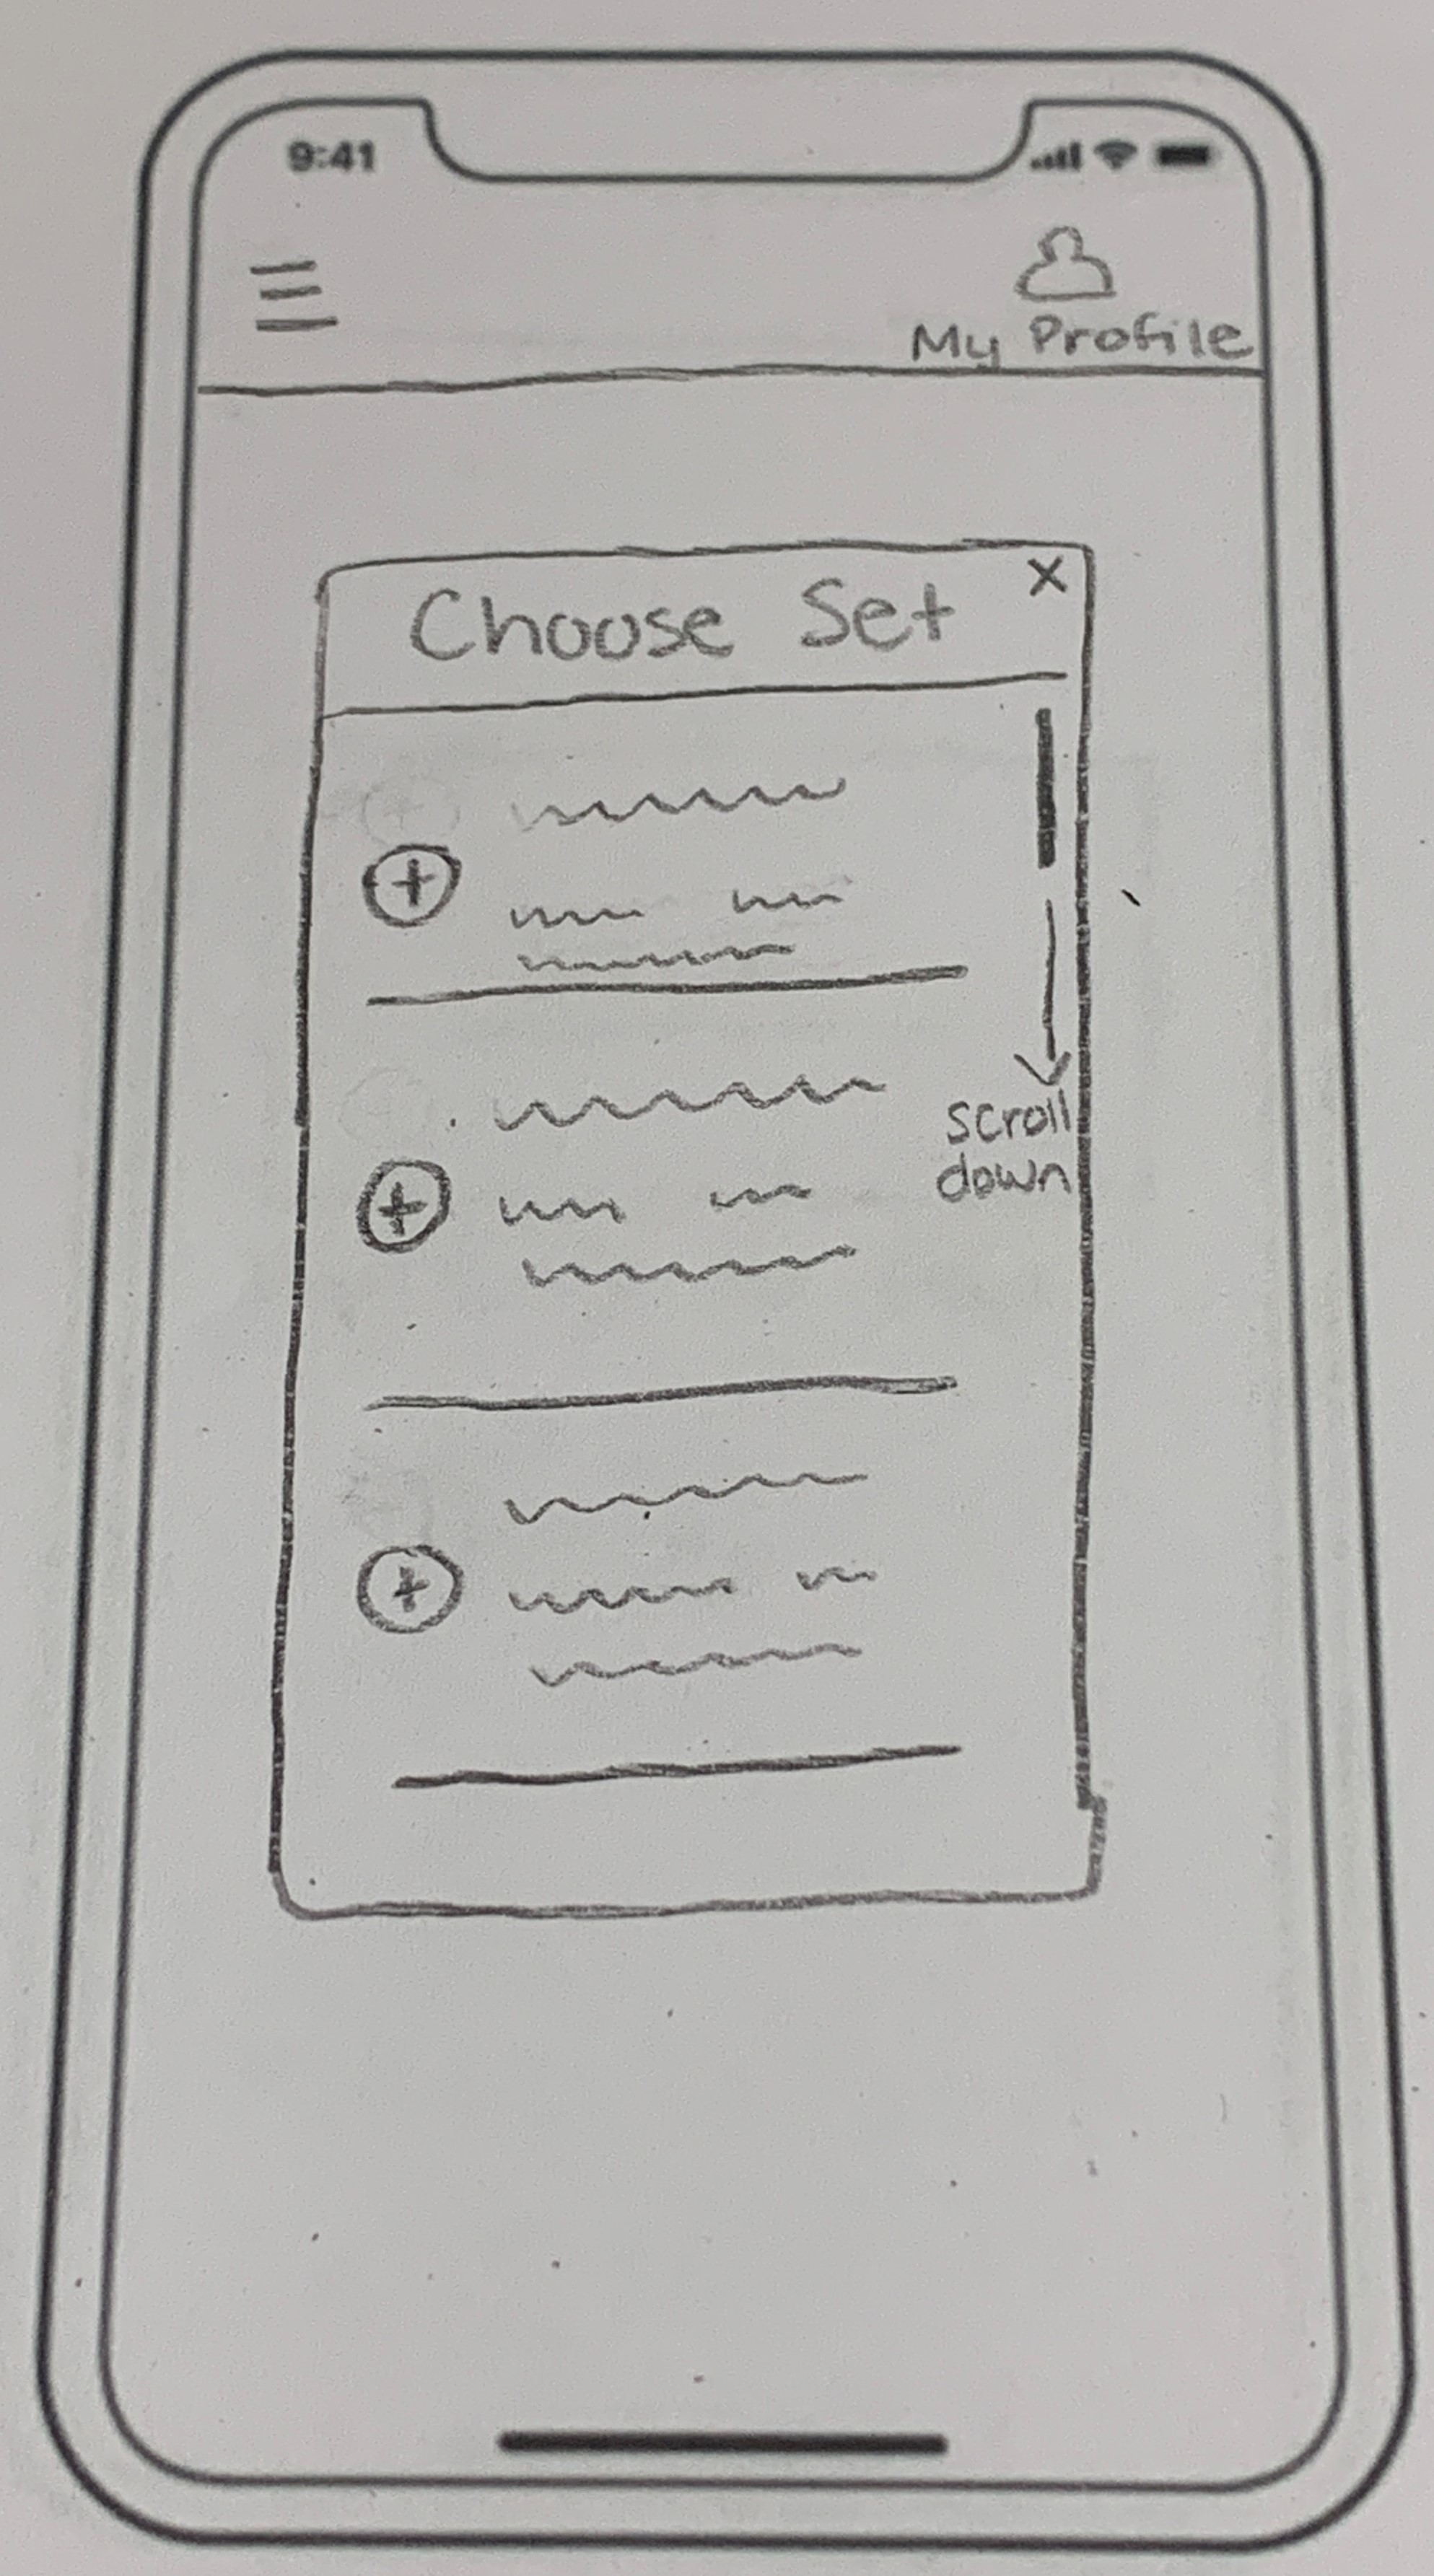 9:41
My Profile
Choose Set
X
scroll
down